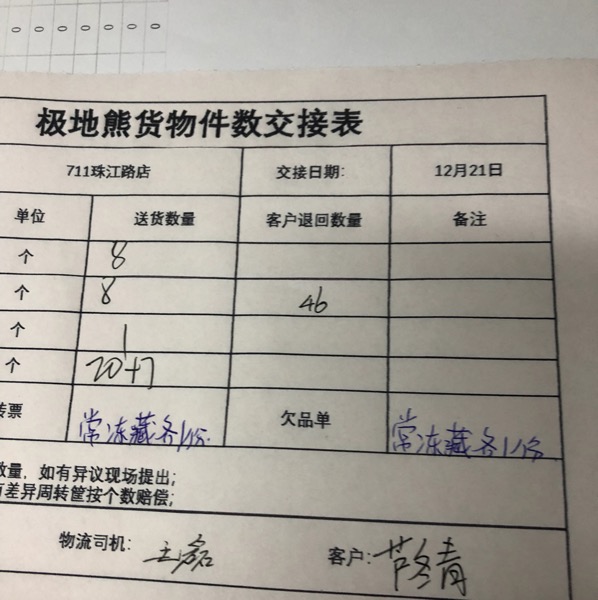 0 0 0 0 0 0
极地熊货物件数交接表
711珠江路店 交接日期: 12月21日
单位 送货数量 客户退回数量 备注
个 8
个 8 46
个 1
个 20+7
票 常冻藏各1份 欠品单 常冻藏各1份
数量，如有异议现场提出;
有差异周转筐按个数赔偿;
物流司机: 客户: